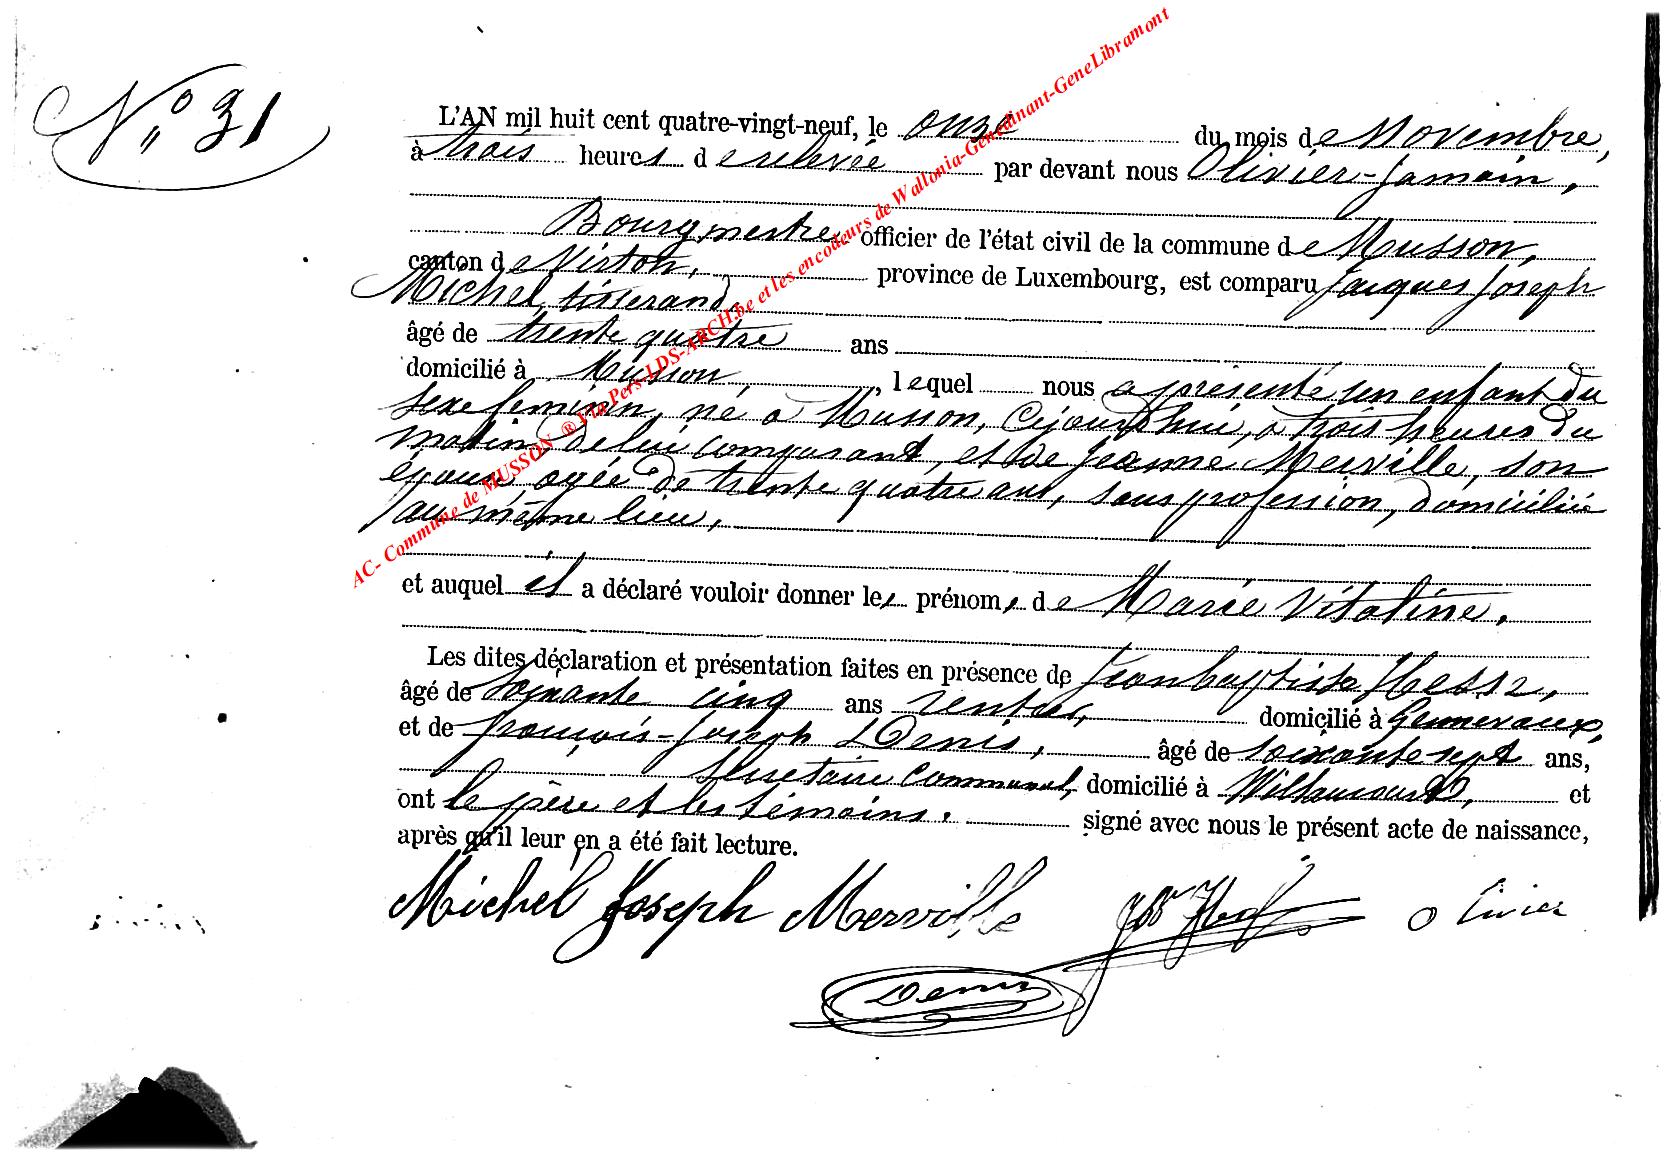 N° 31
L'AN mil huit cent quatre-vingt-neuf, le onze du mois de Novembre,
à trois heures de relevée par devant nous Olivier-Jamain,
Bourgmestre officier de l'état civil de la commune de Musson,
canton de Virton, province de Luxembourg, est comparu Jacques Joseph
Michel, tisserand,
âgé de trente quatre ans
domicilié à Musson, lequel nous a présenté un enfant du
sexe feminin, né à Musson, cejourdhui, à trois heures du
matin, de lui comparant, et de Jeanne Merville, son
épouse, agée de trente quatre ans, sans profession, domiciliée
au même lieu,
et auquel il a déclaré vouloir donner les prénoms de Marie Vitaline.
Les dites déclaration et présentation faites en présence de Jean baptiste Hesse,
âgé de soixante cinq ans rentier, domicilié à Gennevaux,
et de françois-Joseph Denis, âgé de soixante sept ans,
secretaire communal, domicilié à Willancourt, et
ont le père et les témoins. signé avec nous le présent acte de naissance,
après qu'il leur en a été fait lecture.
Michel Joseph Merville Olivier
Denis
AC- Commune de MUSSON ® Via Pers-LDS-ARCH.be et les encodeurs de Wallonia-Genedinant-GeneLibramont